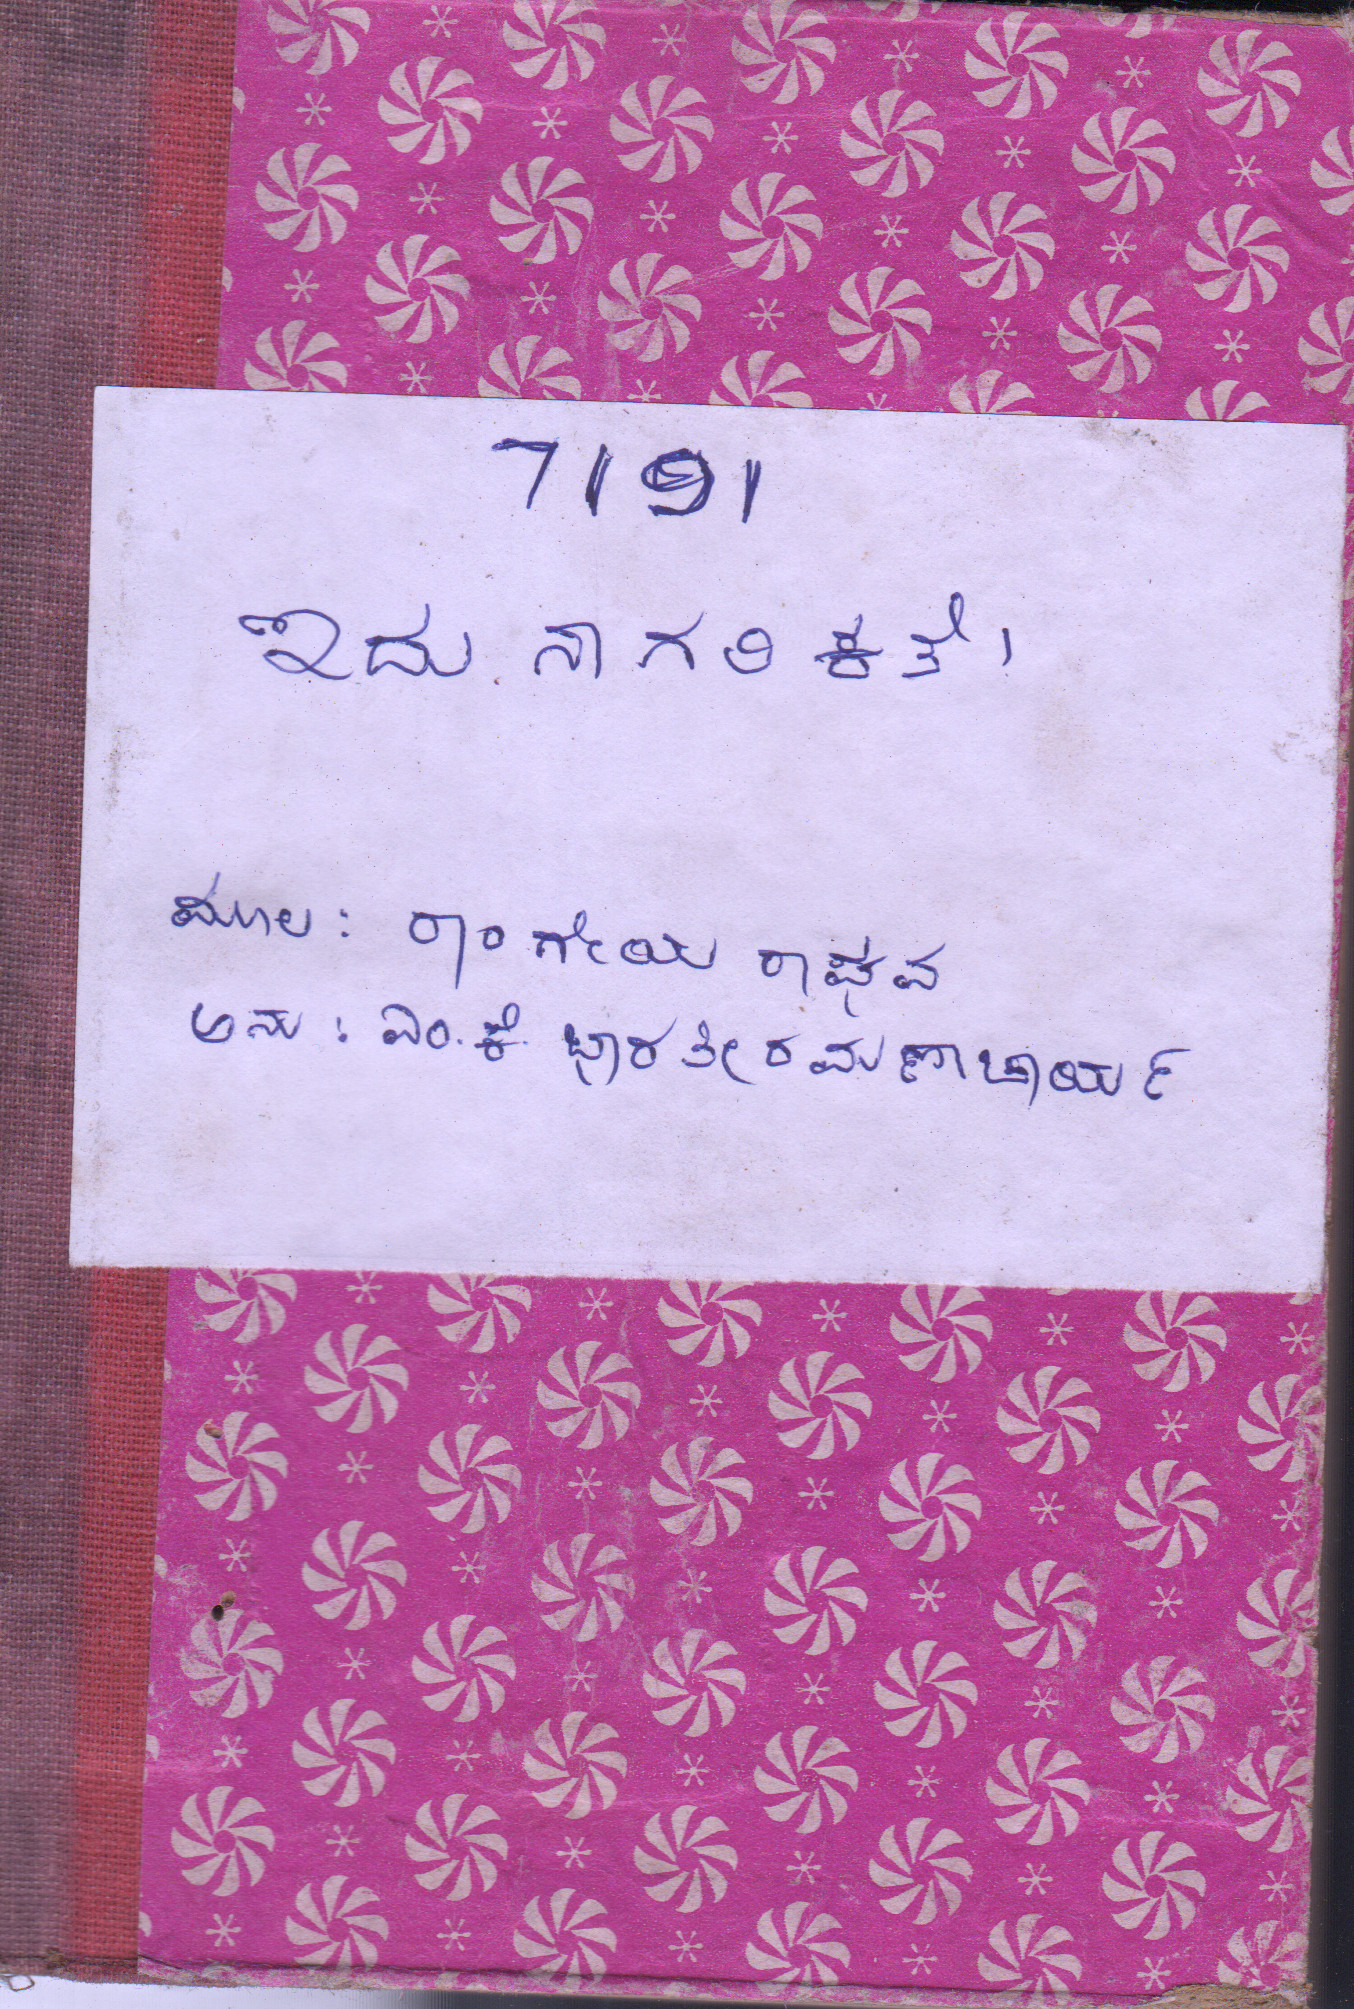 7191
ಇದು ನಾಗರಿಕತೆ!
ಮೂಲ : ರಾಂಗೇಯ ರಾಘವ
ಅನು : ಎಂ.ಕೆ. ಭಾರತೀರಮಣಾಚಾರ್ಯ